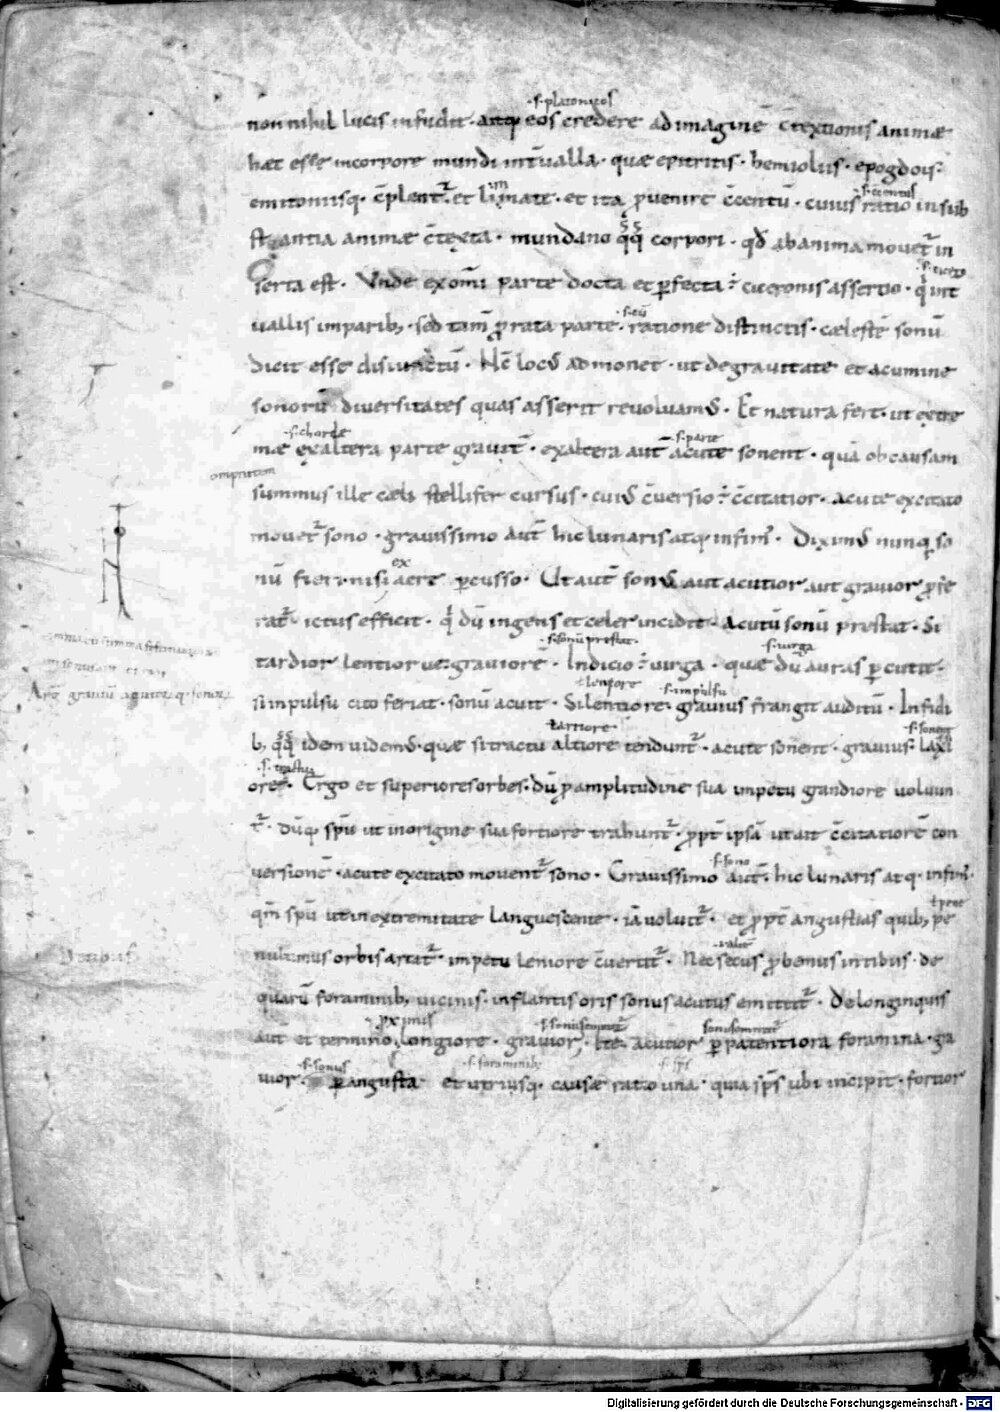 ·s· platonicos
non nihil lucis infudit· atq; eos credere ad imaginē c̄textionis animæ
hæc esse incorpore mundi int̄ualla· quæ epitritis· hemiolus· epogdois·
emitoniisq· c̄plent᷒· et limmate· et ita p̱uenire c̄centū· cuius ratio in sub
stantia animæ c̄texta· mundano qq̄ corpori· qđ ab anima mouet᷒ in
serta est· Vnde ex om̄i parte docta et p̱fecta ÷ ciceronis assertio· q̇ int
uallis imparib; sed tam̄ p̱ rata parte· ratione distinctis· cælestē sonū
dicit esse disiunctū· Hc̄ locū admonet· ut de grauitate et acumine
sonorū diuersitates quas asserit reuoluam᷒· Et natura fert· ut extre
·s· chorde ·s· parte
mæ ex altera parte grauit̄· ex altera aut̄ acute sonent· quā ob causam
summus ille cæli stellifer cursus· cui᷒ c̄uersio ÷ c̄citatior· acute excitato
mouet᷒ sono· grauissimo aut̄ hic lunaris atq· infim᷒· Dixim᷒ nunq̄ so
ex
nū fieri· nisi aere p̱cusso· Ut aut̄ son᷒ aut acutior aut grauior p̱fe
rat᷒· ictus efficit· q̇ dū ingens et celer incidit· acutū sonū prestat· Si
·s· sonū prestat· ·s· uirga
tardior lentior ue· grauiorē· Indicio ÷ uirga· quæ dū auras p̱cutit·
·s· impulsu
si impulsu cito feriat· sonū acuit· Si lentiore· grauius frangit auditū· In fidi
ł artiore· ·s· sonent
b; qq̄ idem uidem᷒· quæ si tractu altiore tendunt᷒· acute sonent· grauius laxi
ore· Ergo et superiores orbes· dū p̱ amplitudine sua impetu grandiore uoluun
t᷒· dūq; spū ut in origine sua fortiore trahunt᷒· p̱pt̄ ipsā ut ait c̄citatiorē con
·s· sono
versionē· acute excitato mouent᷒ sono· Grauissimo aut̄· hic lunaris atq· infim᷒·
qm̄ spū ut in extremitate languescente· iā uoluit᷒· et p̱pt̄ angustias quib; pe
nultimus orbis artat᷒· impetu leniore c̄uertit᷒· Nec secus p̱bemus in tibiis· de
quarū foraminib; uicinis· inflantis oris sonus acutus emittit᷒· De longinquis
aut̄ et termino longiore· grauior· Itē acutior p̱ patentiora foramina· gra
·s· sonus ·s· foraminib;
uior· p̱ angusta et utriusq· causæ ratio una· quia sp̄s ubi incipit· fortior
Digitalisierung gefördert durch die Deutsche Forschungsgemeinschaft - DFG